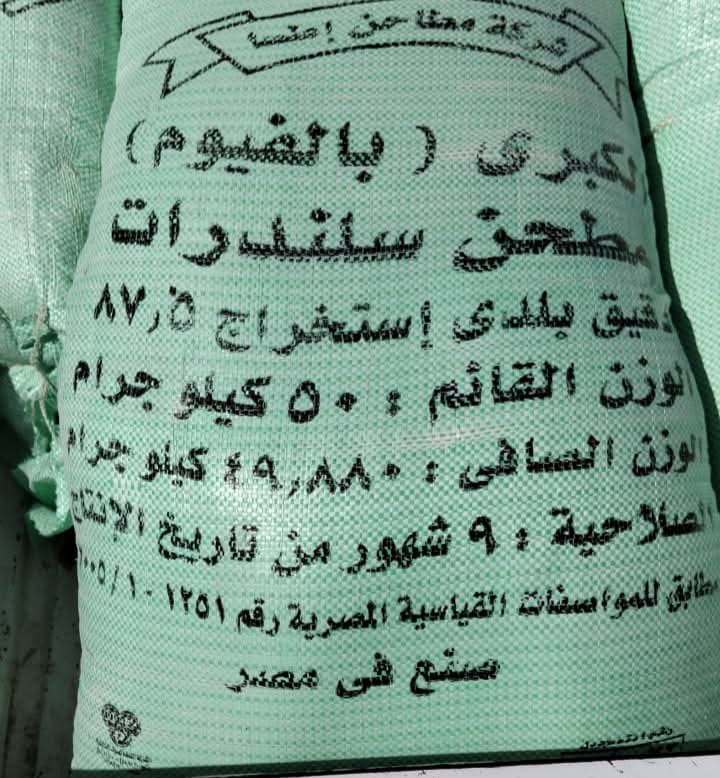 شركة مطاحن إطسا
الكبرى ( بالفيوم )
مطحن سلندرات
دقيق بلدى إستخراج ٨٧٫٥
الوزن القائم : ٥٠ كيلو جرام
الوزن الصافى : ٤٩٫٨٨٠ كيلو جرام
الصلاحية : ٩ شهور من تاريخ الإنتاج
مطابق للمواصفات القياسية المصرية رقم ١٢٥١ - ١ / ٢٠٠٥
صنع فى مصر